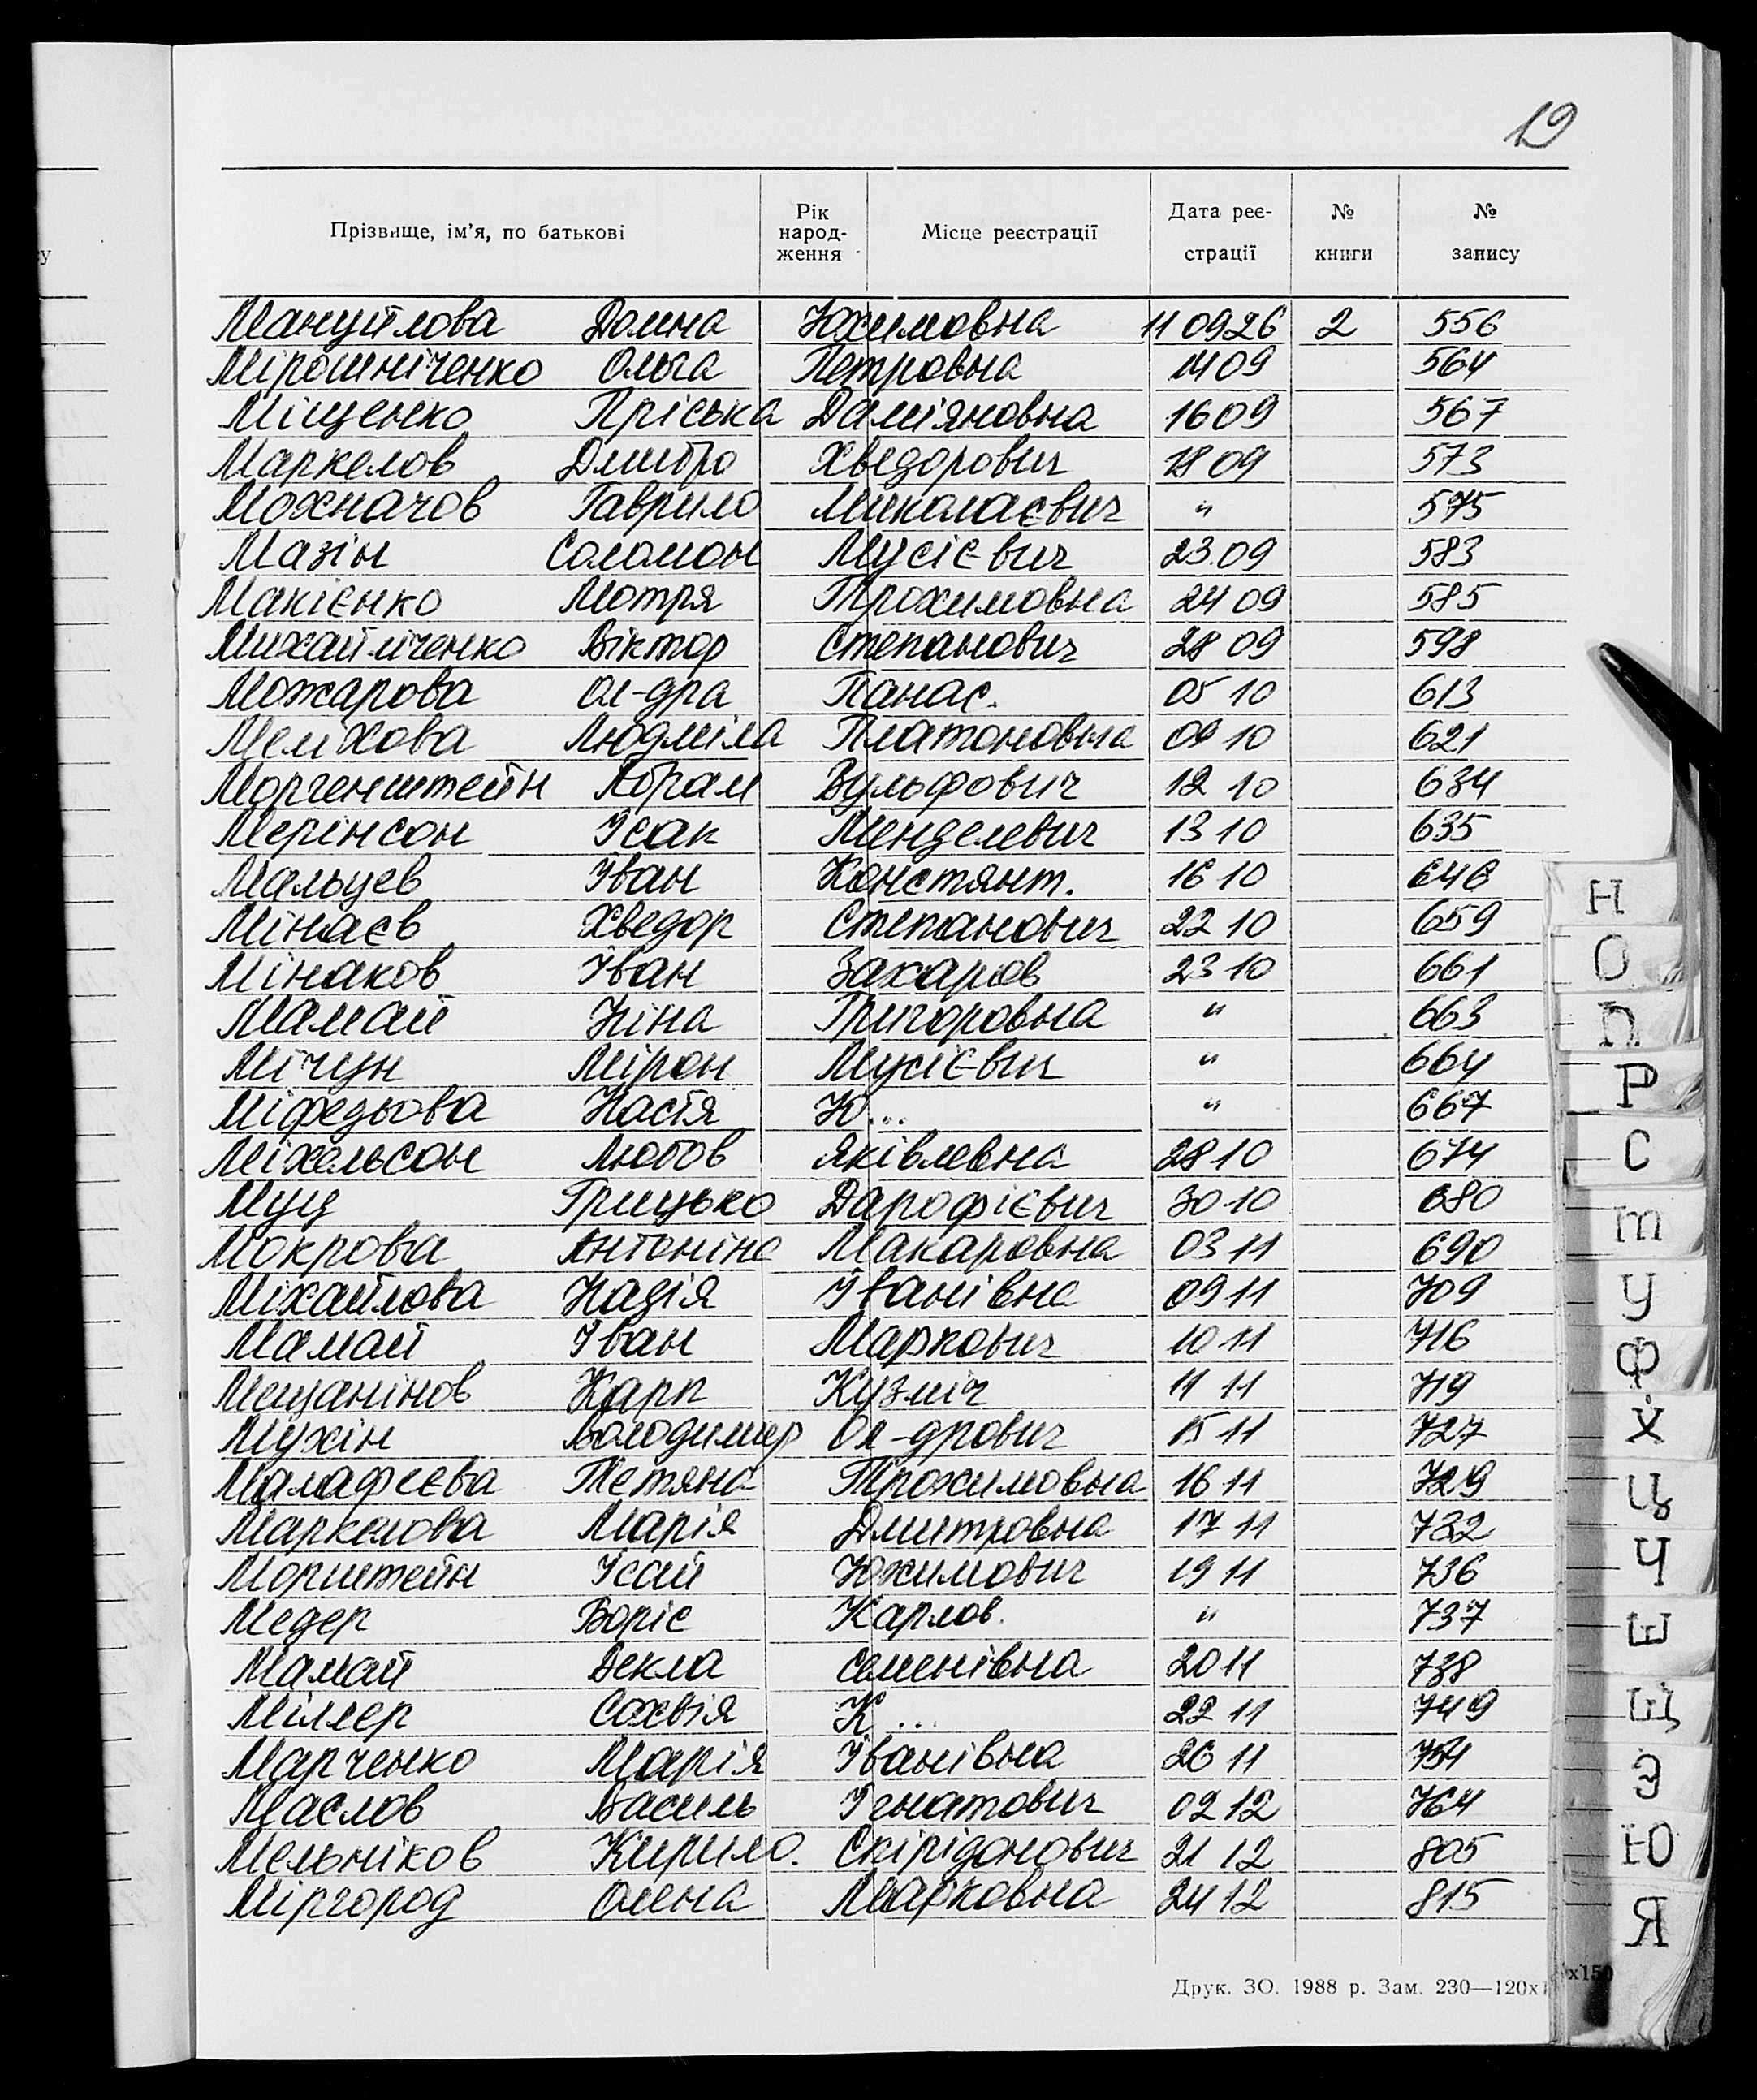 19
у
Прізвище, ім'я, по батькові Рік народ-ження Місце реєстрації Дата реє-страції № книги № запису
Мануйлова Домна Юхимовна 11 09 26 2 556
Мірошніченко Ольга Петровна 14 09 564
Міщенко Пріська Даміяновна 16 09 567
Маркелов Дмитро Хведорович 18 09 573
Мохначов Гаврило Миколаєвич " 575
Мазін Соломон Мусієвич 23.09 583
Макієнко Мотря Трохимовна 24 09 585
Михайліченко Віктор Степанович 28 09 598
Можарова Ол-дра Панас. 05 10 613
Меліхова Людміла Платоновна 09 10 621
Моргенштейн Абрам Вульфович 12 10 634
Мерінсон Ісак Менделевич 13 10 635
Мальцев Іван Констянт. 16 10 646
Мінаєв Хведор Степанович 22 10 659
Мінаков Іван Захаров 23 10 661
Мамай Ніна Григоровна " 663
Мічун Мірон Мусієвич " 664
Міфедьова Настя Ю... " 667
Міхельсон Любов Яківлевна 28 10 674
Муц Грицько Дарофієвич 30 10 680
Мокрова Антоніна Макаровна 03 11 690
Міхайлова Надія Іванівна 09 11 709
Мамай Іван Маркович 10 11 716
Мещанінов Карп Кузміч 11 11 719
Мухін Володимир Ол-дрович 15 11 727
Малафеєва Тетяна Трохимовна 16 11 729
Маркелова Марія Дмитровна 17 11 732
Морштейн Ісай Юхимович 19 11 736
Медер Воріс Карлов. " 737
Мамай Декла Семенівна 20 11 738
Міллер Сохвія К... 22 11 749
Марченко Марія Іванівна 26 11
Маслов Василь Ігнатович 02 12 764
Мельніков Кирило. Скірідонович 21 12 805
Міргород Олена Марковна 24 12 815
Друк. ЗО. 1988 р. Зам. 230—120х1
х150
Н
О
П
Р
С
т
У
Ф
Х
Ц
Ч
Ш
Щ
Э
Ю
Я